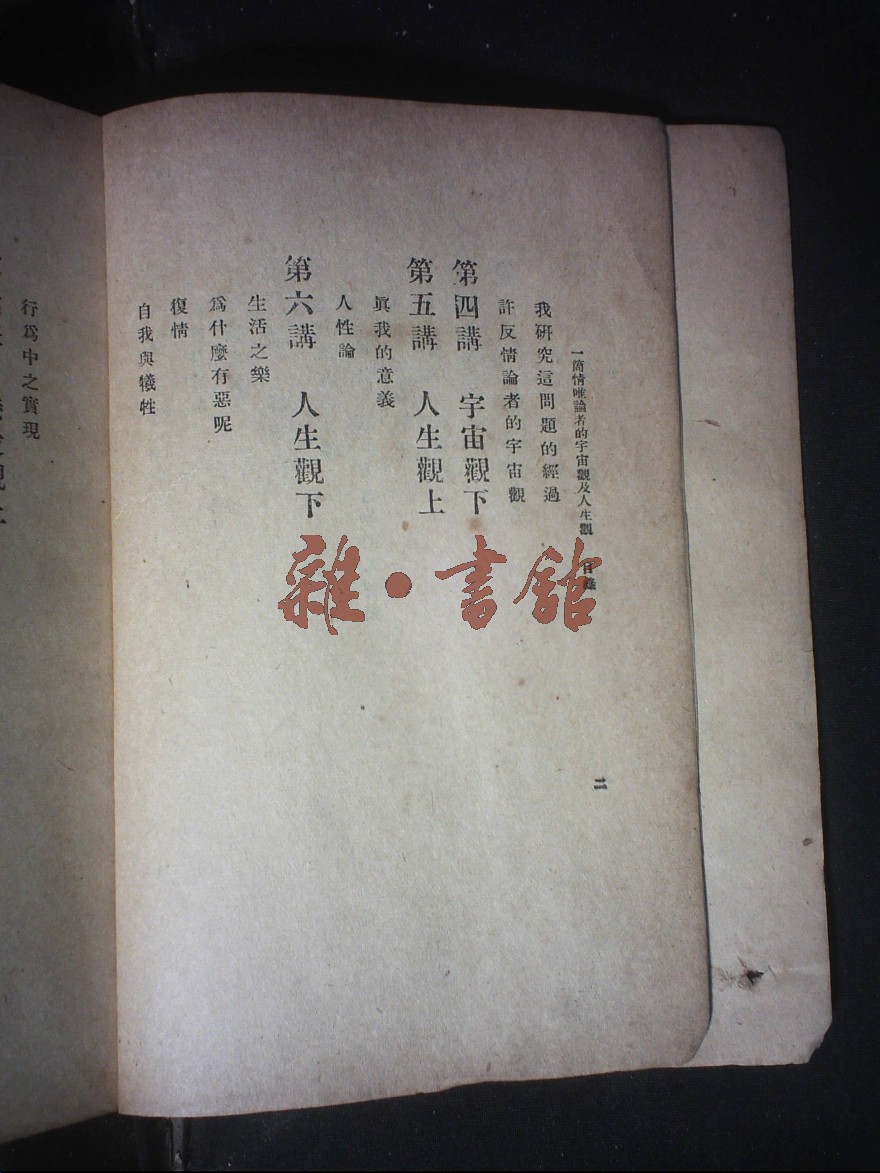 一個情唯論者的宇宙觀及人生觀 目錄
二
我研究這問題的經過
許反情論者的宇宙觀
第四講 宇宙觀下
第五講 人生觀上
眞我的意義
人性論
第六講 人生觀下
生活之樂
爲什麼有惡呢
復情
自我與犧牲
行爲中之實現
雜·書館